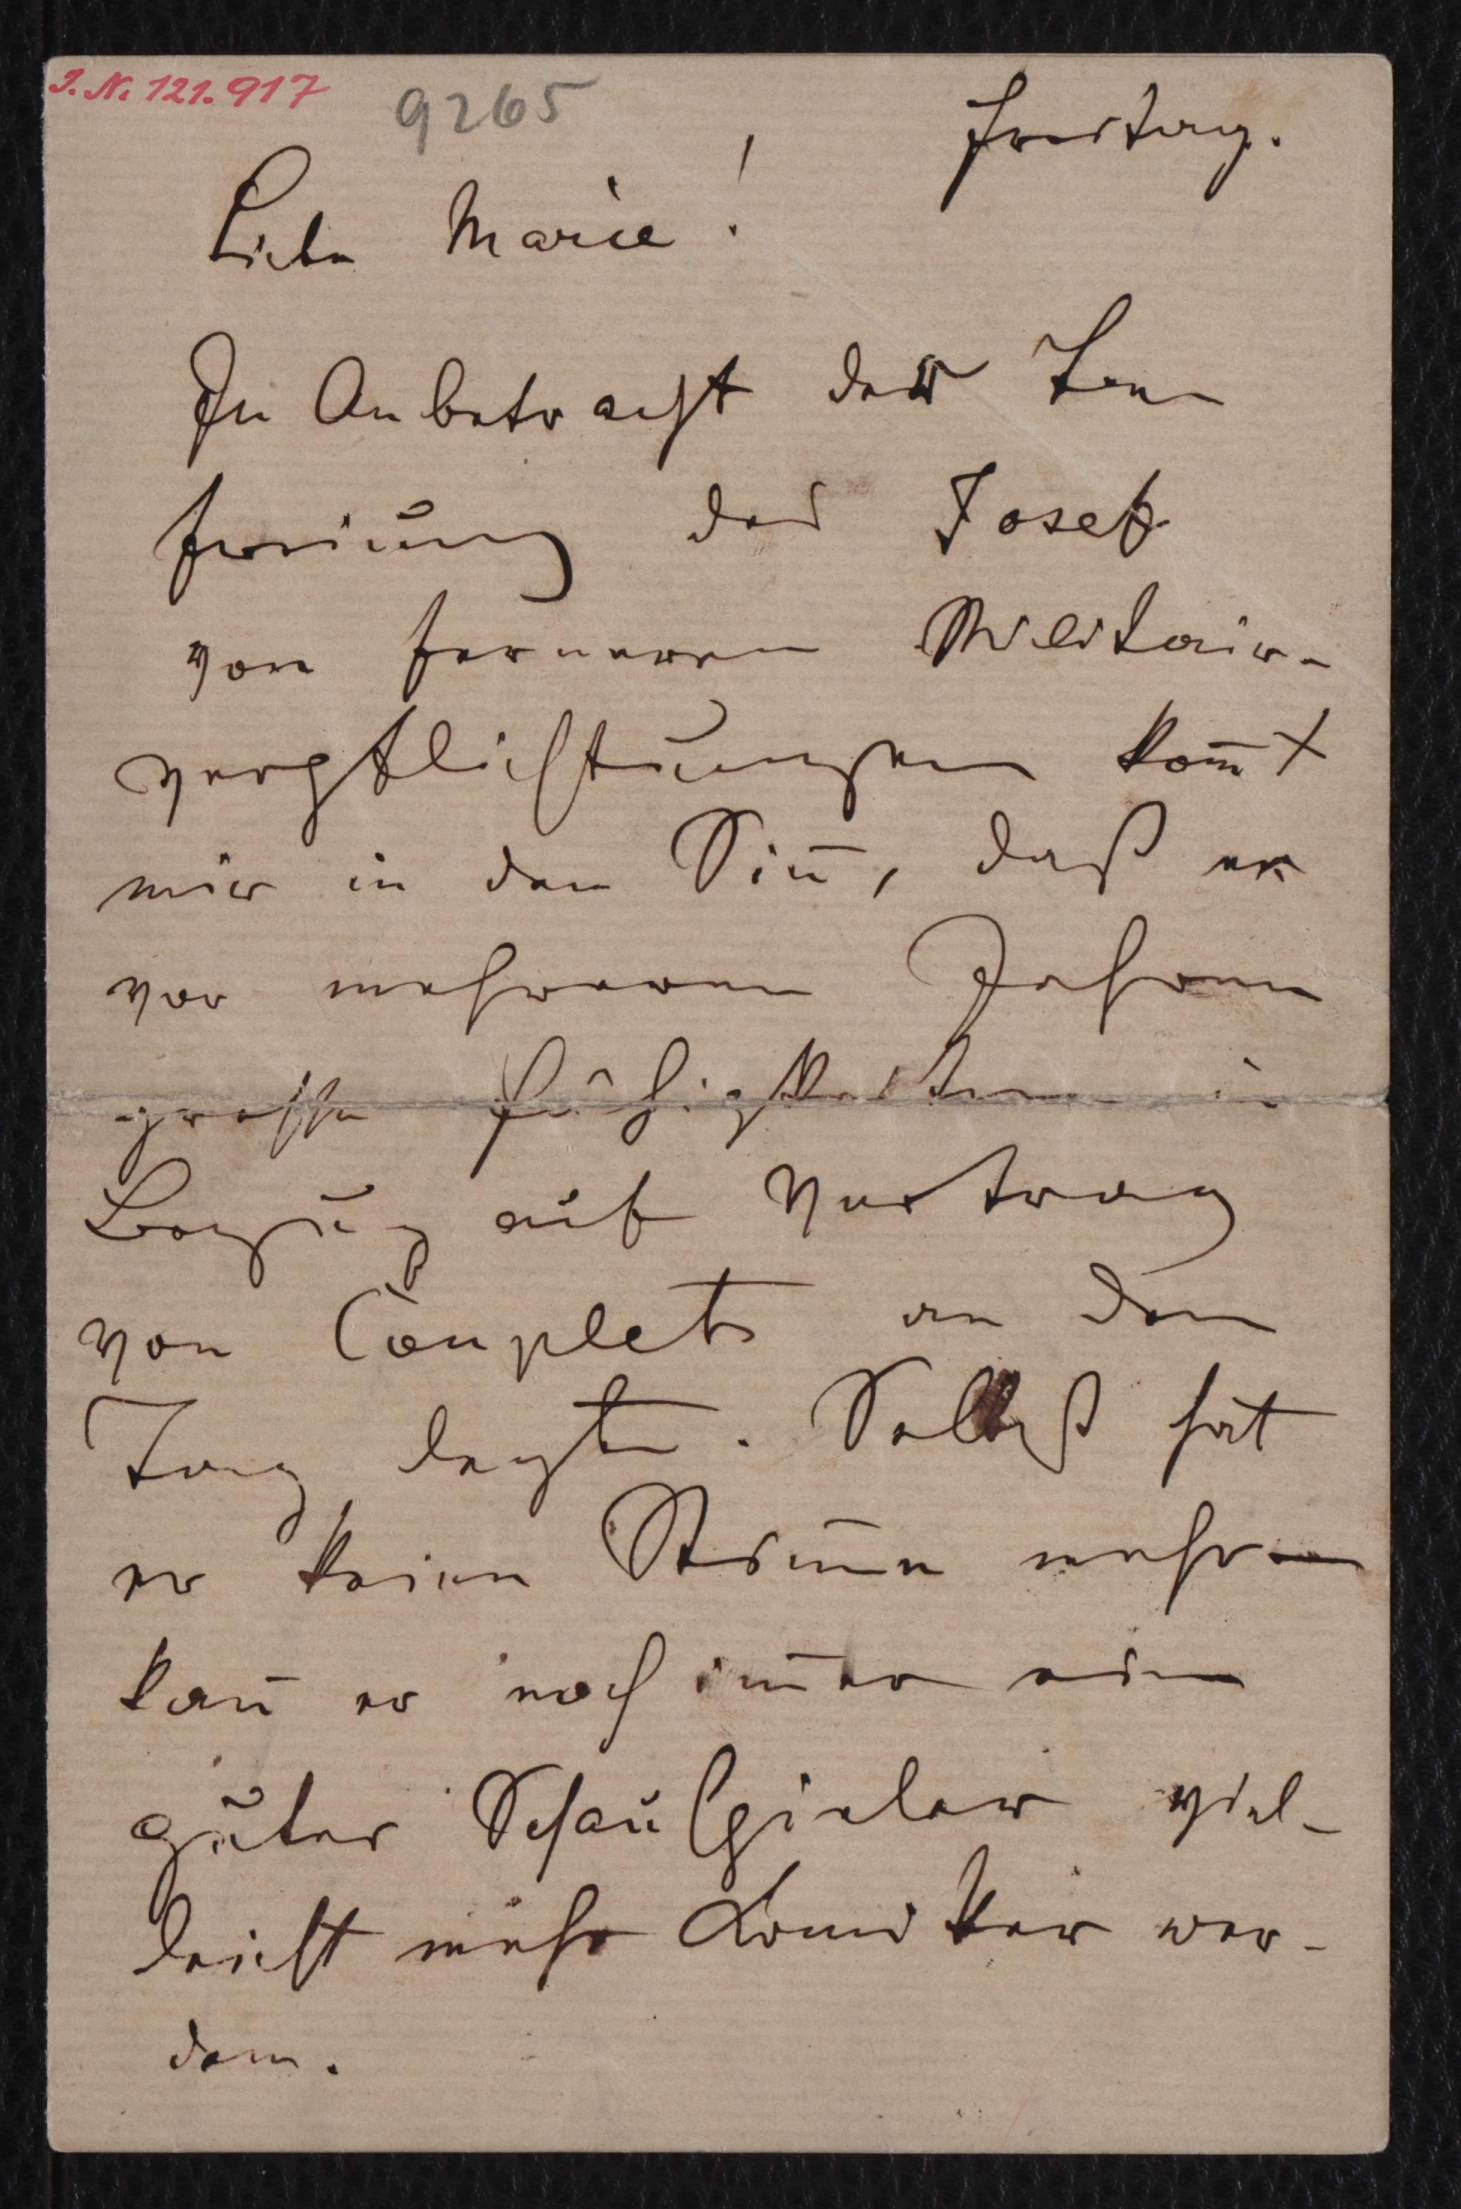 I. N. 121.917
9265
Freitag.
Liebe Marie!
In Anbetracht der Be
freiung des Josef
von ferneren Militair-
verpflichtungen kom̄t
mir in den Sin̄, daß er
vor mehreren Jahren
große Fähigkeiten in
Bezug auf Vortrag
von Couplets an den
Tag legte. Selbst hat
er keine Stim̄e mehr
kan̄ er noch im̄er ein
guter Schauspieler viel-
leicht mehr Komiker wer-
den.